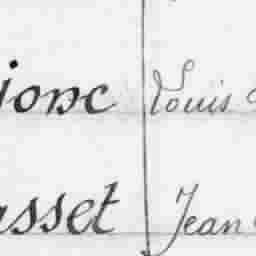 jonc Louis
sset Jean